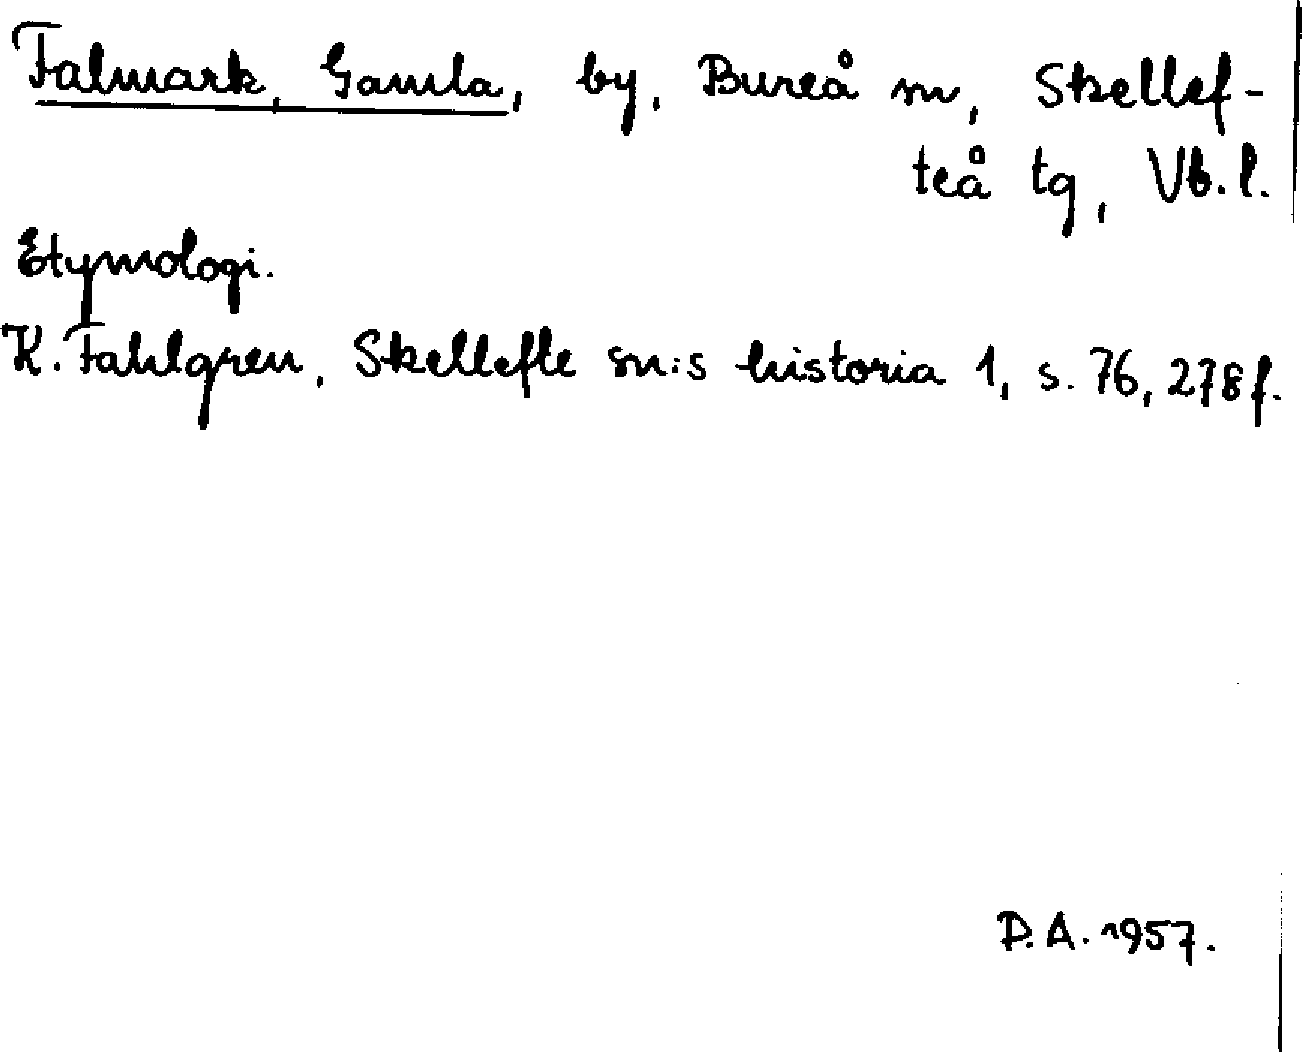 Falmark, Gamla, by, Bureå sn, Skellef-
teå tg, Vb.l.
Etymologi.
K. Fahlgren, Skellefte sn:s historia 1, s. 76, 278 f.
P.A. 1957.